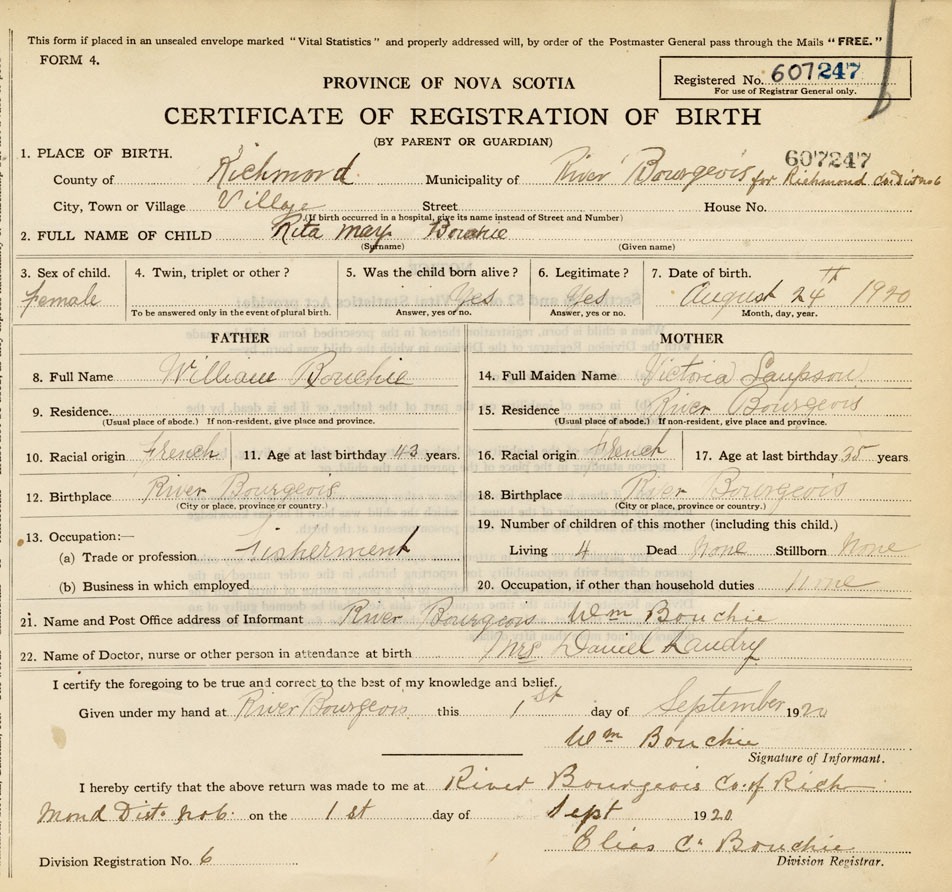 This form if placed in an unsealed envelope marked "Vital Statistics" and properly addressed will, by order of the Postmaster General pass through the Mails "FREE."
FORM 4.
Registered No. 607247
For use of Registrar General only.
PROVINCE OF NOVA SCOTIA
CERTIFICATE OF REGISTRATION OF BIRTH
(BY PARENT OR GUARDIAN)
607247
1. PLACE OF BIRTH.
County of Richmond Municipality of River Bourgeois for Richmond Co. Dist no 6
City, Town or Village Village Street House No.
(If birth occurred in a hospital, give its name instead of Street and Number)
2. FULL NAME OF CHILD Rita May Bouchie
(Surname) (Given name)
3. Sex of child. 4. Twin, triplet or other? 5. Was the child born alive? 6. Legitimate? 7. Date of birth.
female Yes Yes August 24th 1920
To be answered only in the event of plural birth. Answer, yes or no. Answer, yes or no. Month, day, year.
FATHER MOTHER
8. Full Name William Bouchie 14. Full Maiden Name Victoria Sampson
9. Residence. 15. Residence River Bourgeois
(Usual place of abode.) If non-resident, give place and province. (Usual place of abode.) If non-resident, give place and province.
10. Racial origin french 11. Age at last birthday 43 years. 16. Racial origin french 17. Age at last birthday 35 years
12. Birthplace River Bourgeois 18. Birthplace River Bourgeois
(City or place, province or country.) (City or place, province or country.)
13. Occupation:— 19. Number of children of this mother (including this child.)
(a) Trade or profession Fisherment Living 4 Dead None Stillborn None
(b) Business in which employed 20. Occupation, if other than household duties None
21. Name and Post Office address of Informant River Bourgeois Wm Bouchie
22. Name of Doctor, nurse or other person in attendance at birth Mrs Daniel Landry
I certify the foregoing to be true and correct to the best of my knowledge and belief.
Given under my hand at River Bourgeois this 1st day of September 1920
Wm Bouchie
Signature of Informant.
I hereby certify that the above return was made to me at River Bourgeois Co. of Rich
mond Dist. no 6. on the 1st day of Sept 1920.
Elias C. Bouchie
Division Registration No. 6 Division Registrar.